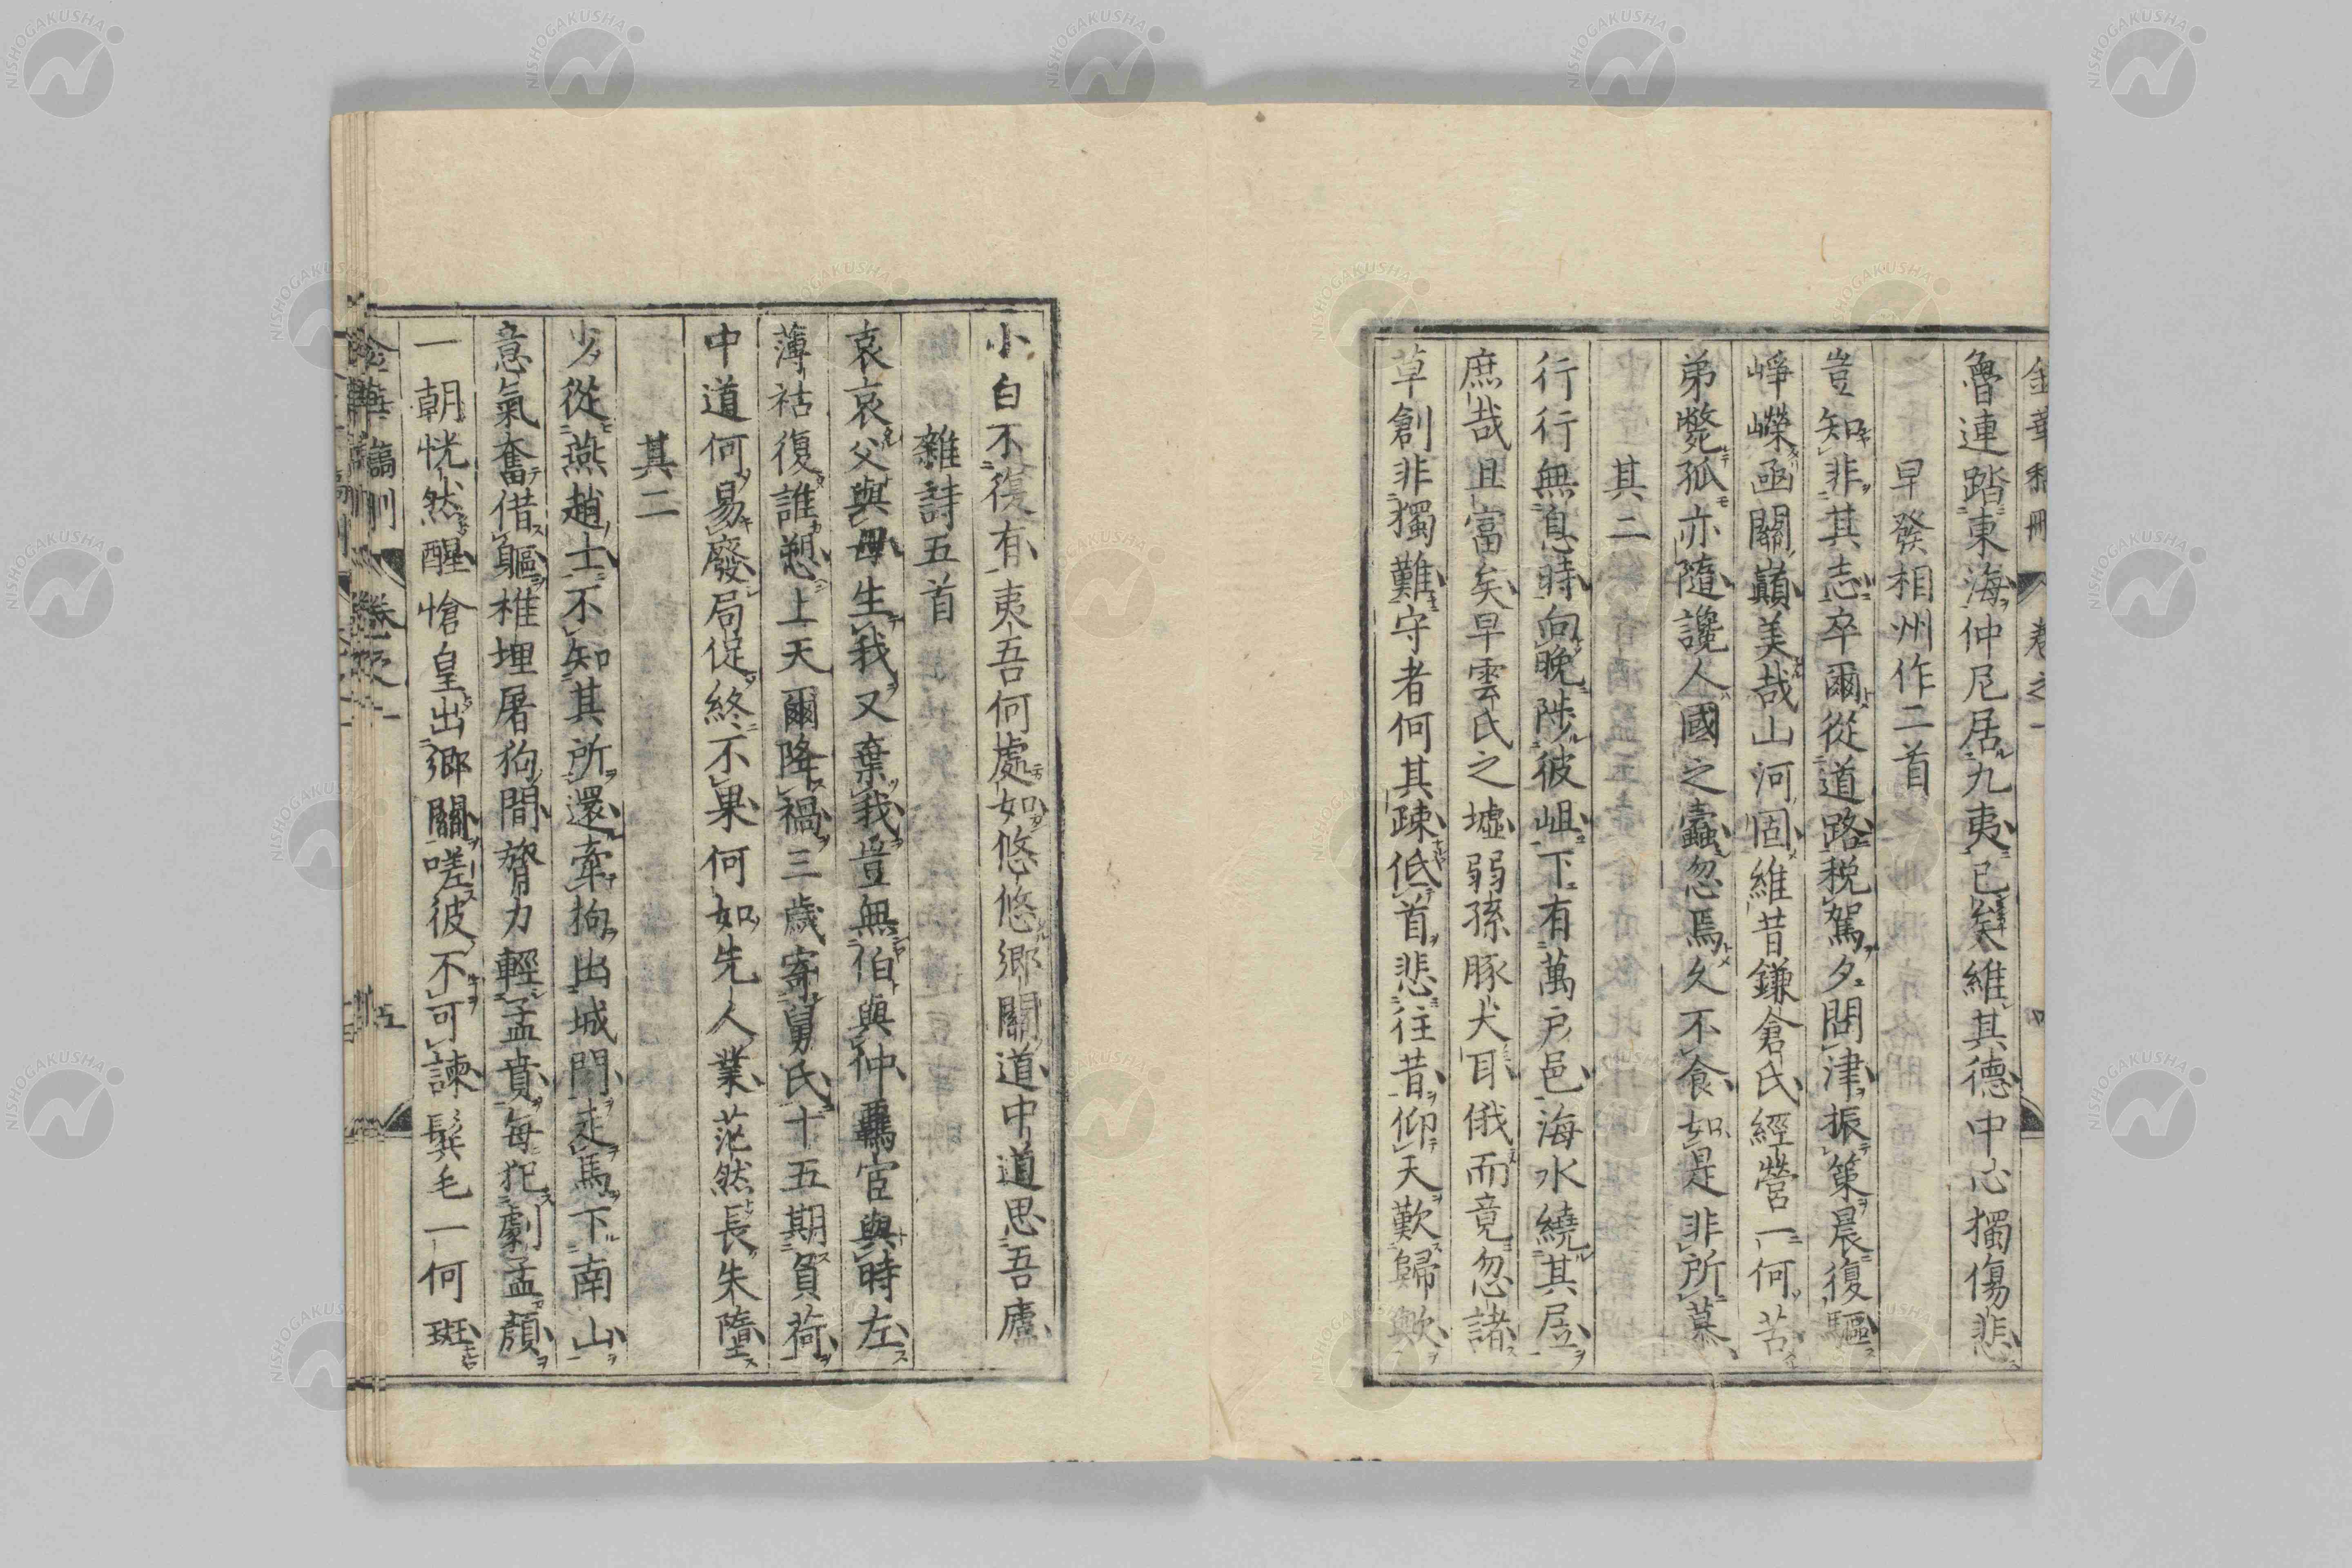 金華稿刪 卷之一
魯連踏東海仲尼居九夷已矣維其德中心獨傷悲
早發相州作二首
豈知非其志卒爾從道路稅駕夕問津振策晨復驅
崢嶸函關巔美哉山河固維昔鎌倉氏經營一何苦
弟斃孤亦隨讒人國之蠹忽焉久不食如是非所慕
其二
行行無息時向晚陟彼岨下有萬戶邑海水繞其居
庶哉且富矣早雲氏之墟弱孫豚犬耳俄而竟忽諸
草創非獨難守者何其疎低首悲往昔仰天歎歸歟
小白不復有夷吾何處如悠悠鄉關道中道思吾廬
雜詩五首
哀哀父與母生我又棄我豈無伯與仲羈宦與時左
薄祜復誰愬上天爾降禍三歲寄舅氏十五期負荷
中道何易廢局促終不果何如先人業茫然長朱墮
其二
少從燕趙士不知其所還牽拘出城門走馬下南山
意氣奮借軀椎埋屠狗間膂力輕孟賁每犯劇孟顏
一朝恍然醒愴皇出鄉關嗟彼不可諫鬂毛一何斑
金華稿刪 卷之一 五
NISHOGAKUSHA